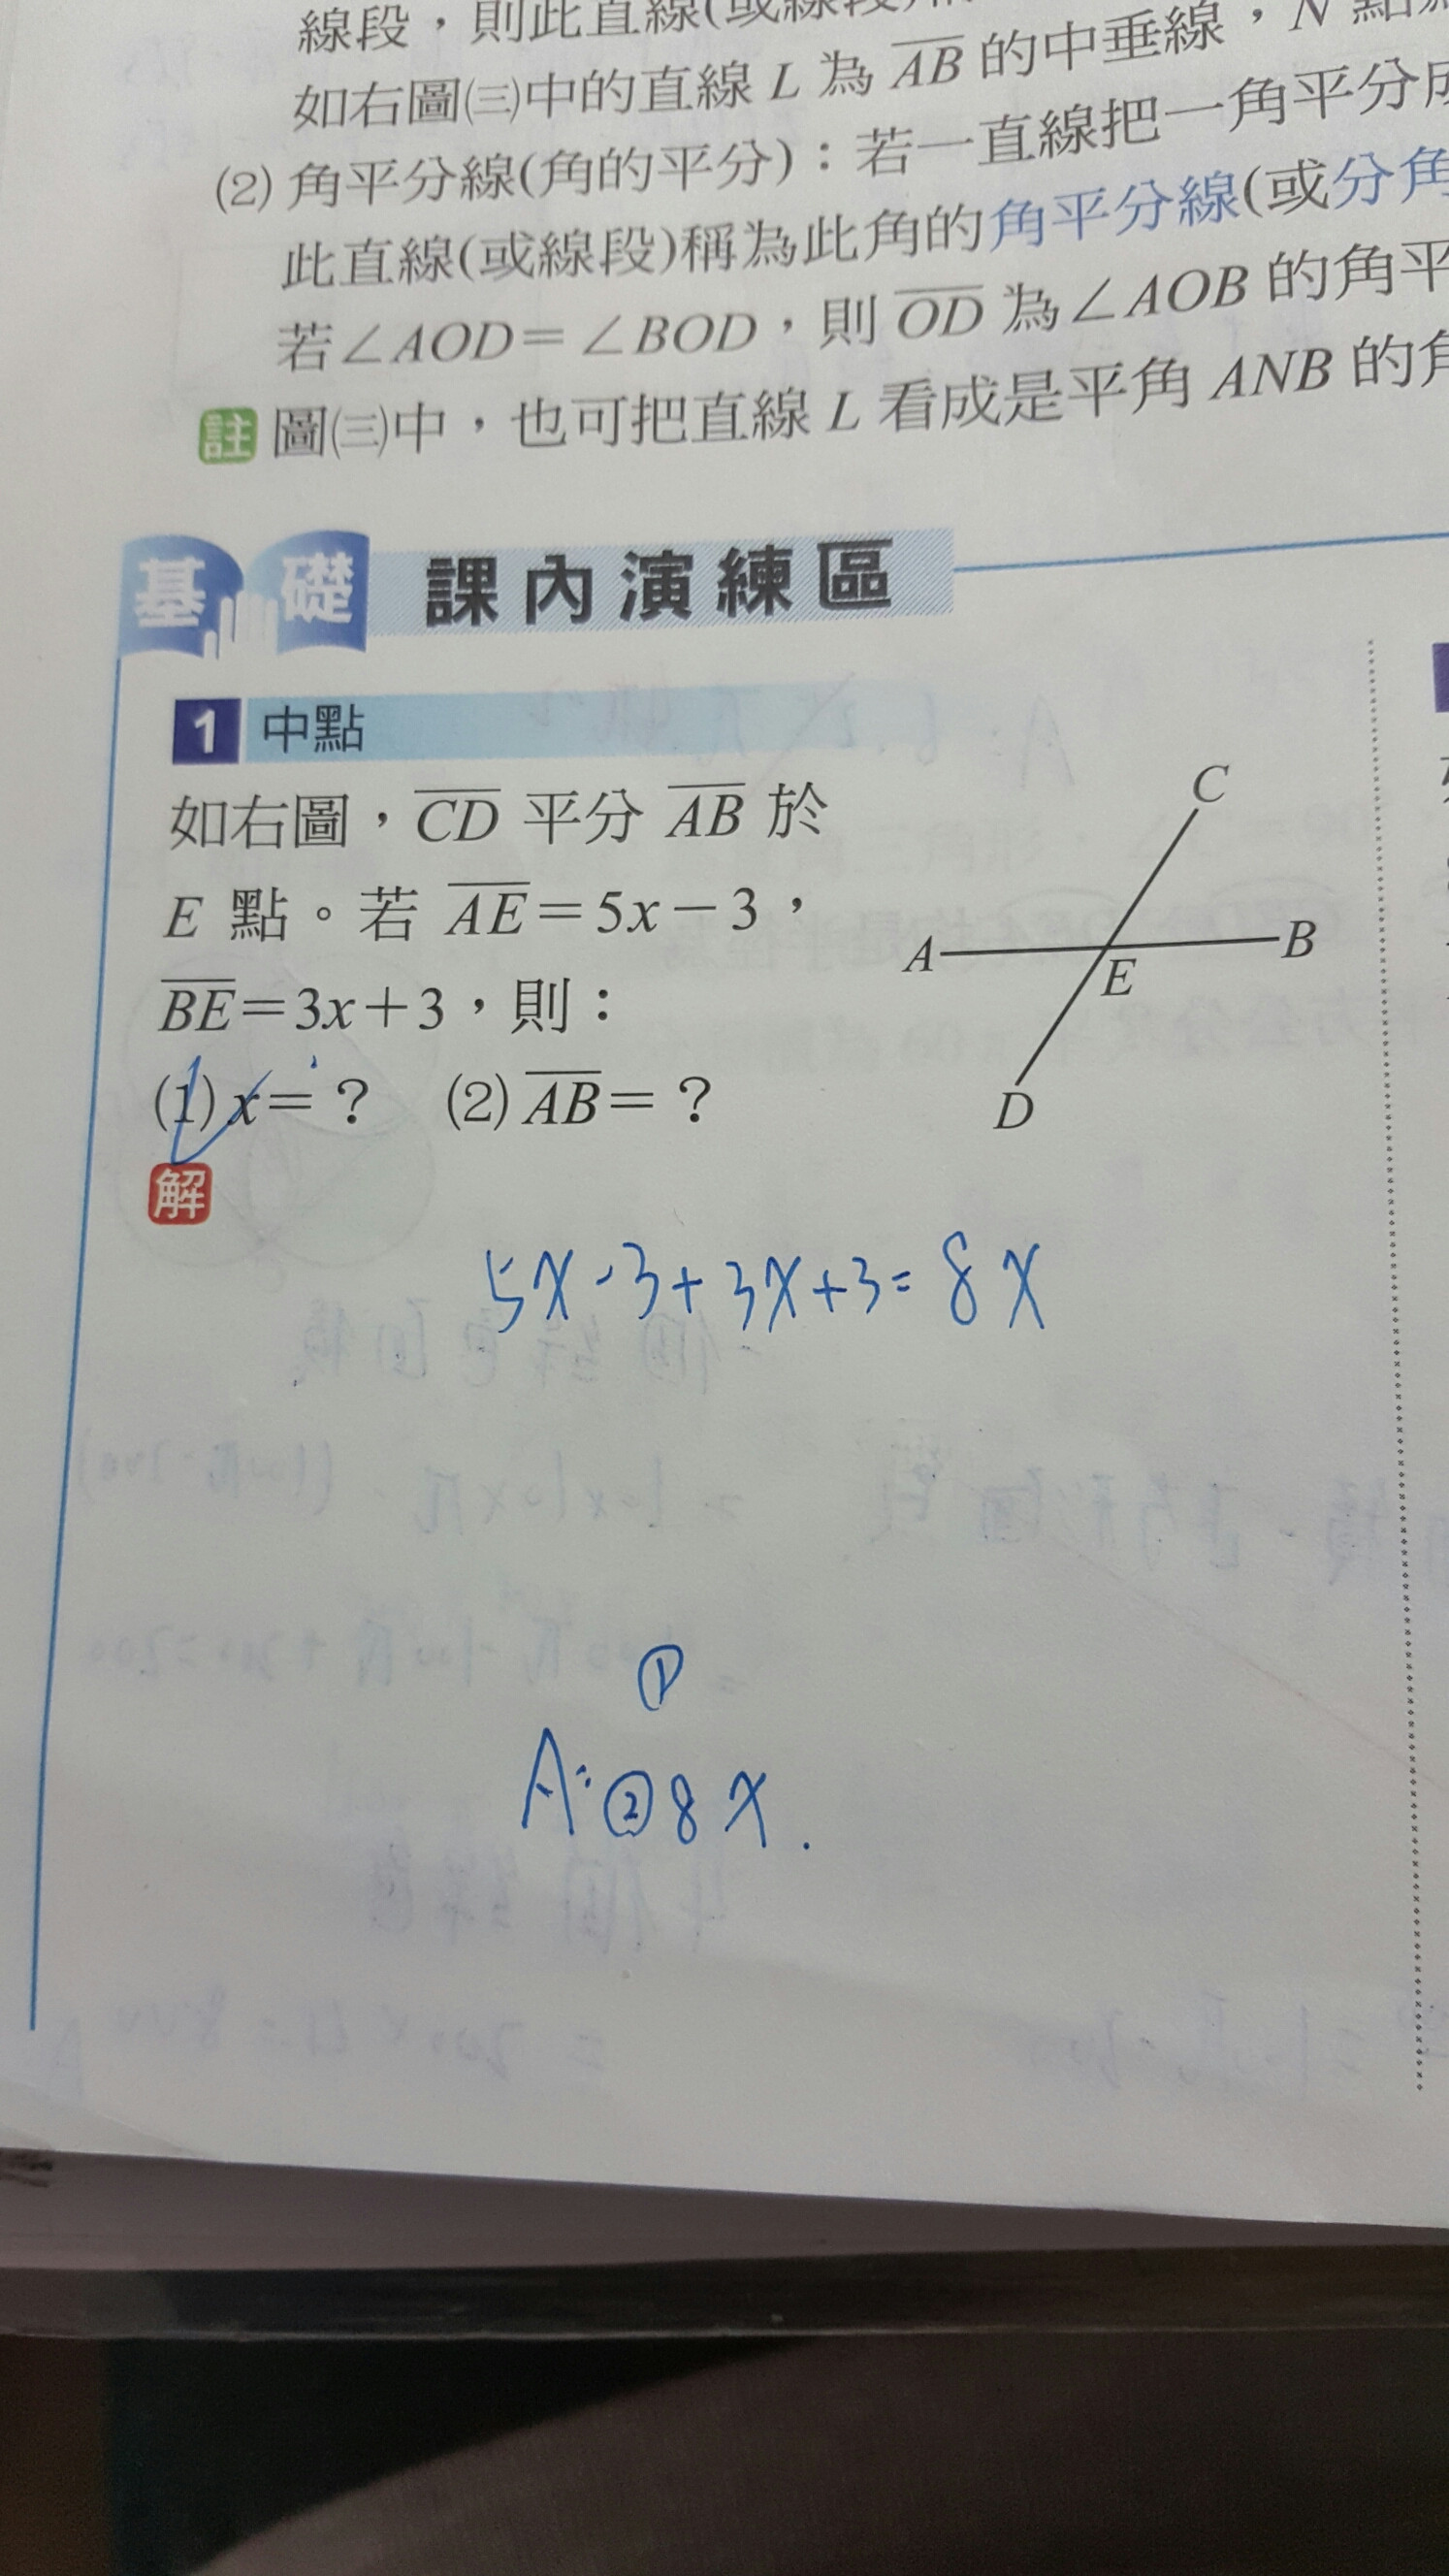 線段，則此直線(或線段)
如右圖㈢中的直線 L 為 AB 的中垂線，N 點
(2) 角平分線(角的平分)：若一直線把一角平分成
此直線(或線段)稱為此角的角平分線(或分角
若∠AOD＝∠BOD，則 OD 為∠AOB 的角平
註 圖㈢中，也可把直線 L 看成是平角 ANB 的角
基礎 課內演練區
1 中點
如右圖，CD 平分 AB 於
E 點。若 AE＝5x－3，
BE＝3x＋3，則：
(1) x＝？ (2) AB＝？
C
A
B
E
D
解
5x-3+3x+3=8x
①
A:②8x.